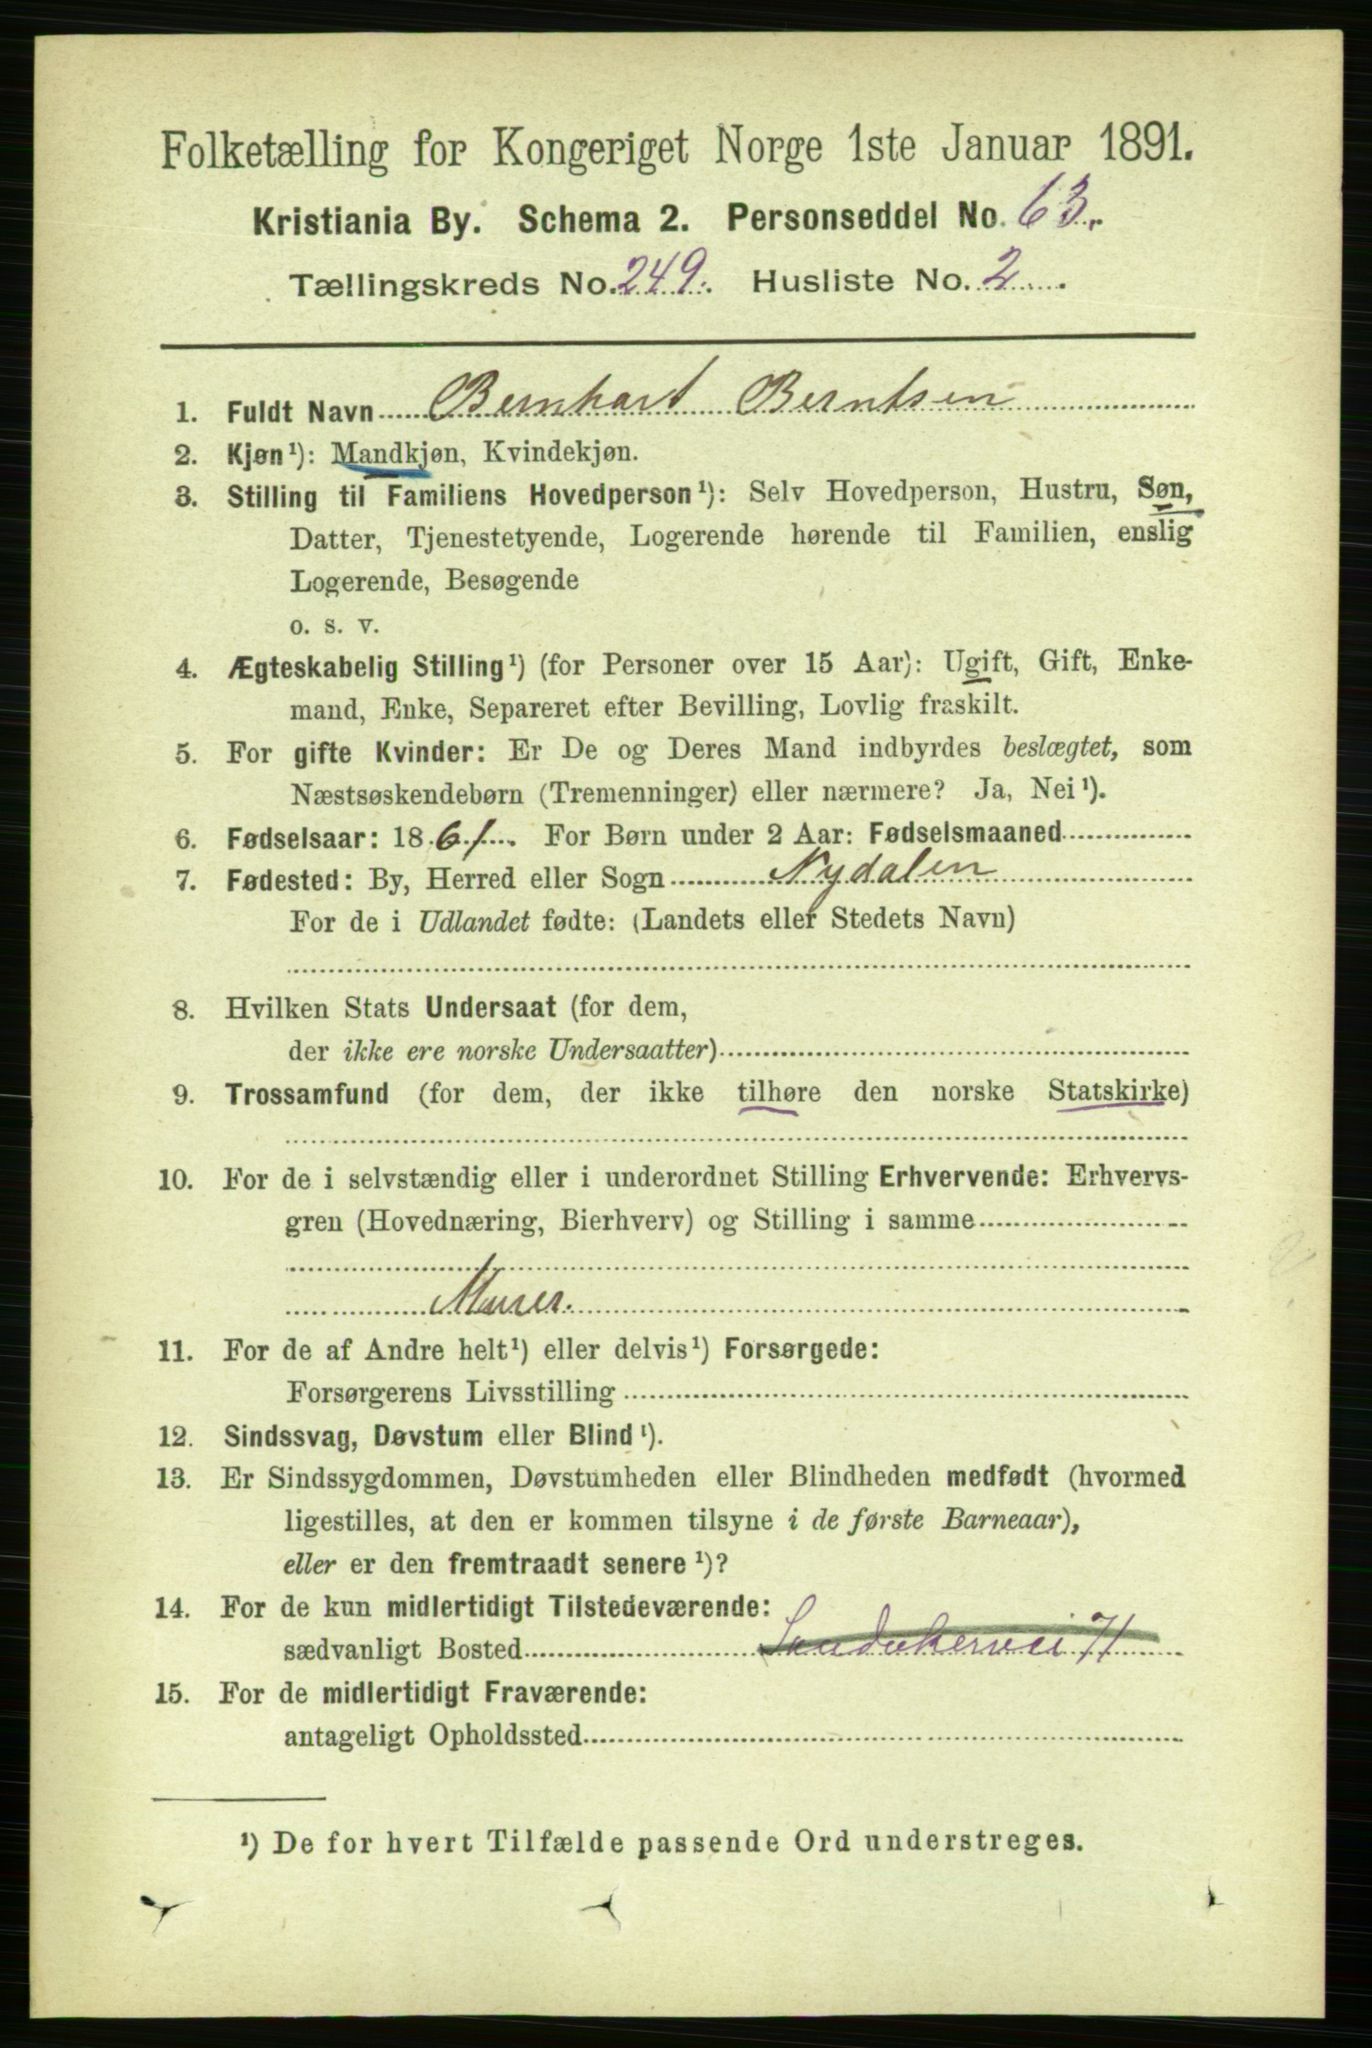 Folketælling for Kongeriget Norge 1ste Januar 1891.
Kristiania By. Schema 2. Personseddel No. 63.
Tællingskreds No. 249. Husliste No. 2
1. Fuldt Navn Bernhart Berntsen
2. Kjøn¹): Mandkjøn, Kvindekjøn.
3. Stilling til Familiens Hovedperson¹): Selv Hovedperson, Hustru, Søn,
Datter, Tjenestetyende, Logerende hørende til Familien, enslig
Logerende, Besøgende
o. s. v.
4. Ægteskabelig Stilling¹) (for Personer over 15 Aar): Ugift, Gift, Enke-
mand, Enke, Separeret efter Bevilling, Lovlig fraskilt.
5. For gifte Kvinder: Er De og Deres Mand indbyrdes beslægtet, som
Næstsøskendebørn (Tremenninger) eller nærmere? Ja, Nei¹).
6. Fødselsaar: 1861. For Børn under 2 Aar: Fødselsmaaned
7. Fødested: By, Herred eller Sogn Nydalen
For de i Udlandet fødte: (Landets eller Stedets Navn)
8. Hvilken Stats Undersaat (for dem,
der ikke ere norske Undersaatter)
9. Trossamfund (for dem, der ikke tilhøre den norske Statskirke)
10. For de i selvstændig eller i underordnet Stilling Erhvervende: Erhvervs-
gren (Hovednæring, Bierhverv) og Stilling i samme
Murer.
11. For de af Andre helt¹) eller delvis¹) Forsørgede:
Forsørgerens Livsstilling
12. Sindssvag, Døvstum eller Blind¹).
13. Er Sindssygdommen, Døvstumheden eller Blindheden medfødt (hvormed
ligestilles, at den er kommen tilsyne i de første Barneaar),
eller er den fremtraadt senere¹)?
14. For de kun midlertidigt Tilstedeværende:
sædvanligt Bosted Sandakerveei 71
15. For de midlertidigt Fraværende:
antageligt Opholdssted
¹) De for hvert Tilfælde passende Ord understreges.